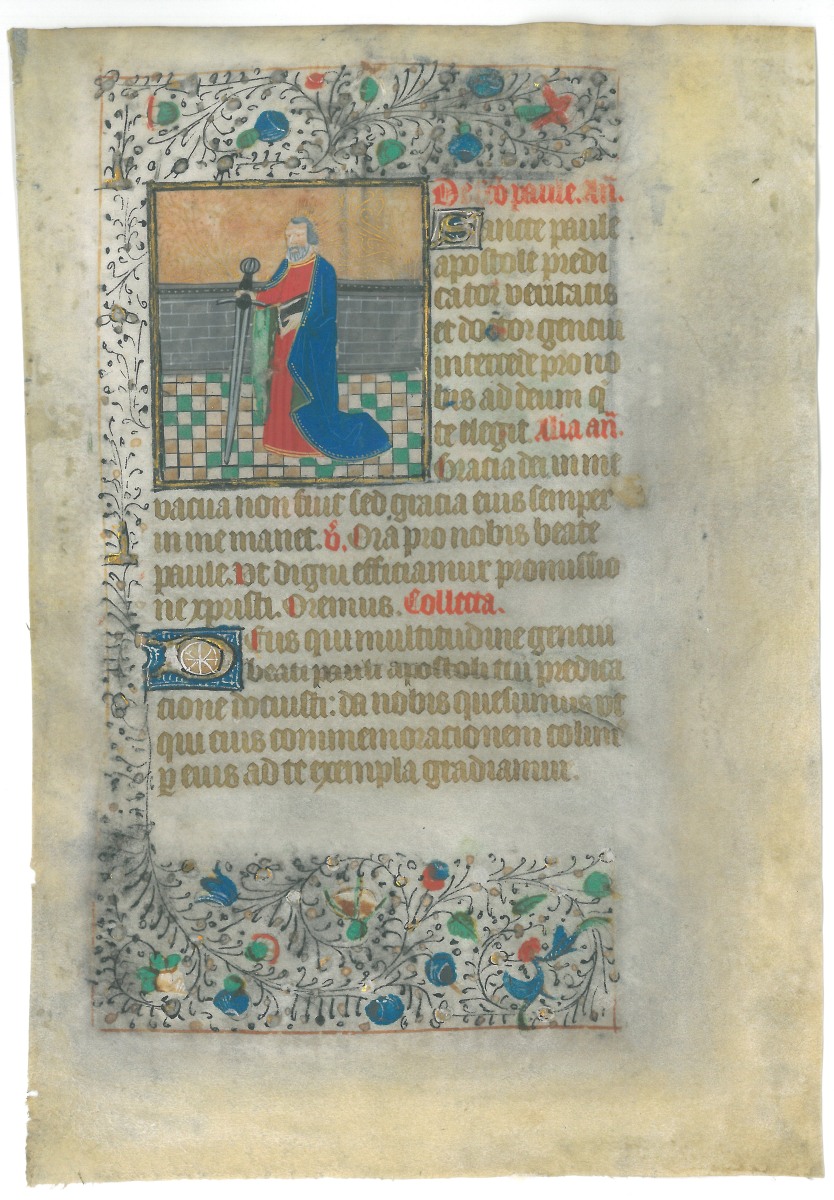 De sco paule. Añ.
Sancte paule
apostole predi
cator veritatis
et doctor genciu
intercede pro no
bis ad deum q
te elegit Alia añ.
Gracia dei in me
vacua non fuit sed gracia eius semper
in me manet. V. Ora pro nobis beate
paule. Vt digni efficiamur promissio
ne xpristi. Oremus. Collecta.
Deus qui multitudine genciu
beati pauli apostoli tui predica
cione docuisti: da nobis quesumus vt
qui eius commemoracionem colim
p eius ad te exempla gradiamur.